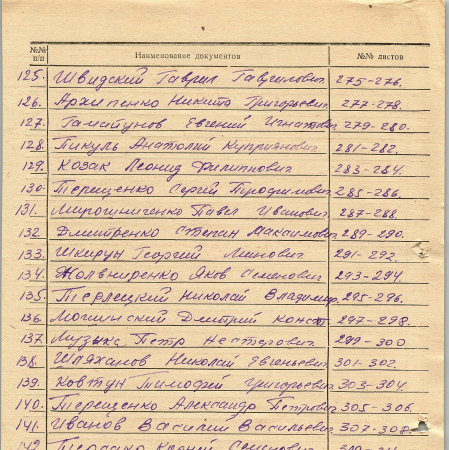 №№ п/п Наименование документов №№ листов
125. Швидский Гаврил Гаврилович 275-276.
126. Архипенко Никита Григорьевич 277-278.
127. Евгений Игнатович 279-280.
128. Пикуль Анатолий Куприянович 281-282.
129. Козак Леонид Филиппович 283-284.
130. Терещенко Сергей Трофимович 285-286.
131. Мирошниченко Павел Иванович 287-288.
132. Дмитренко Степан Максимович 289-290.
133. Шкирун Георгий 291-292.
134. Жолвниренко Яков Семенович 293-294.
135. Терлецкий Николай Владимир 295-296.
136. Дмитрий Конст 297-298.
137. Музыка Петр Нестерович 299-300
138. Шляханов Николай Евгеньевич 301-302.
139. Ковтун Тимофей Григорьевич 303-304.
140. Терещенко Александр Петрович 305-306.
141. Иванов Василий Васильевич 307-308.
142